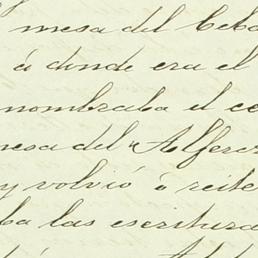 mesa del Ceba
á donde era el
nombraba el ce
mesa del Alferez
y volvió á reite
ba las escritura